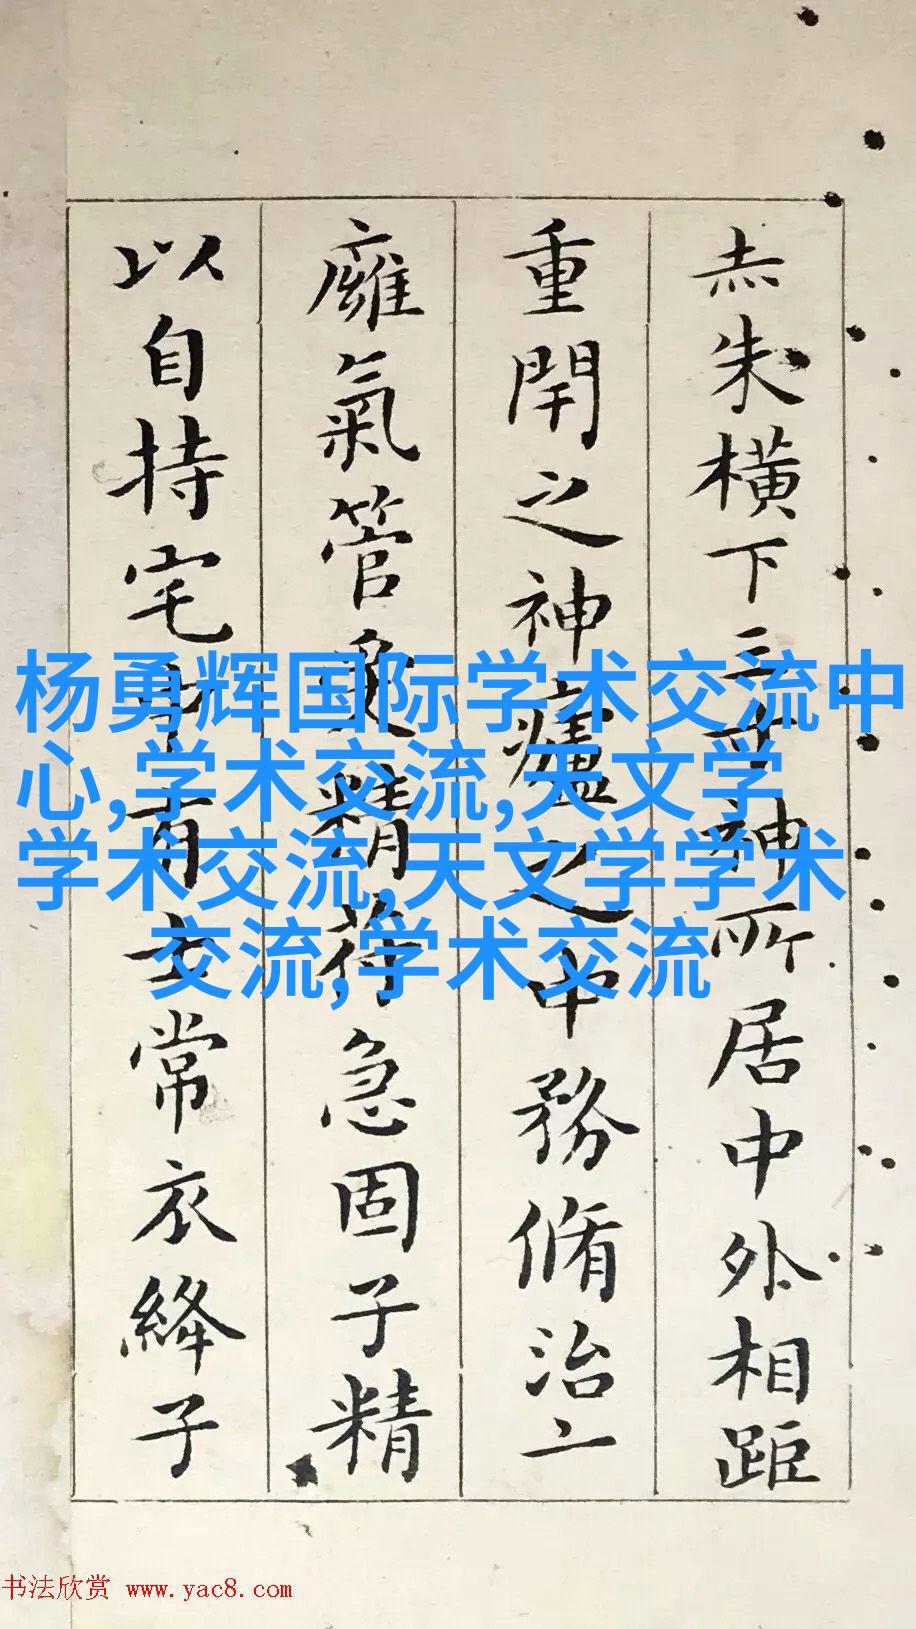 赤朱橫下三寸神所居中外相距
重閇之神廬之中務脩治
膺氣管受精苻急固子精
以自持宅中有士常衣絳子
杨勇辉国际学术交流中
心,学术交流,天文学
学术交流,天文学学术
交流,学术交流
书法欣赏 www.yac8.com